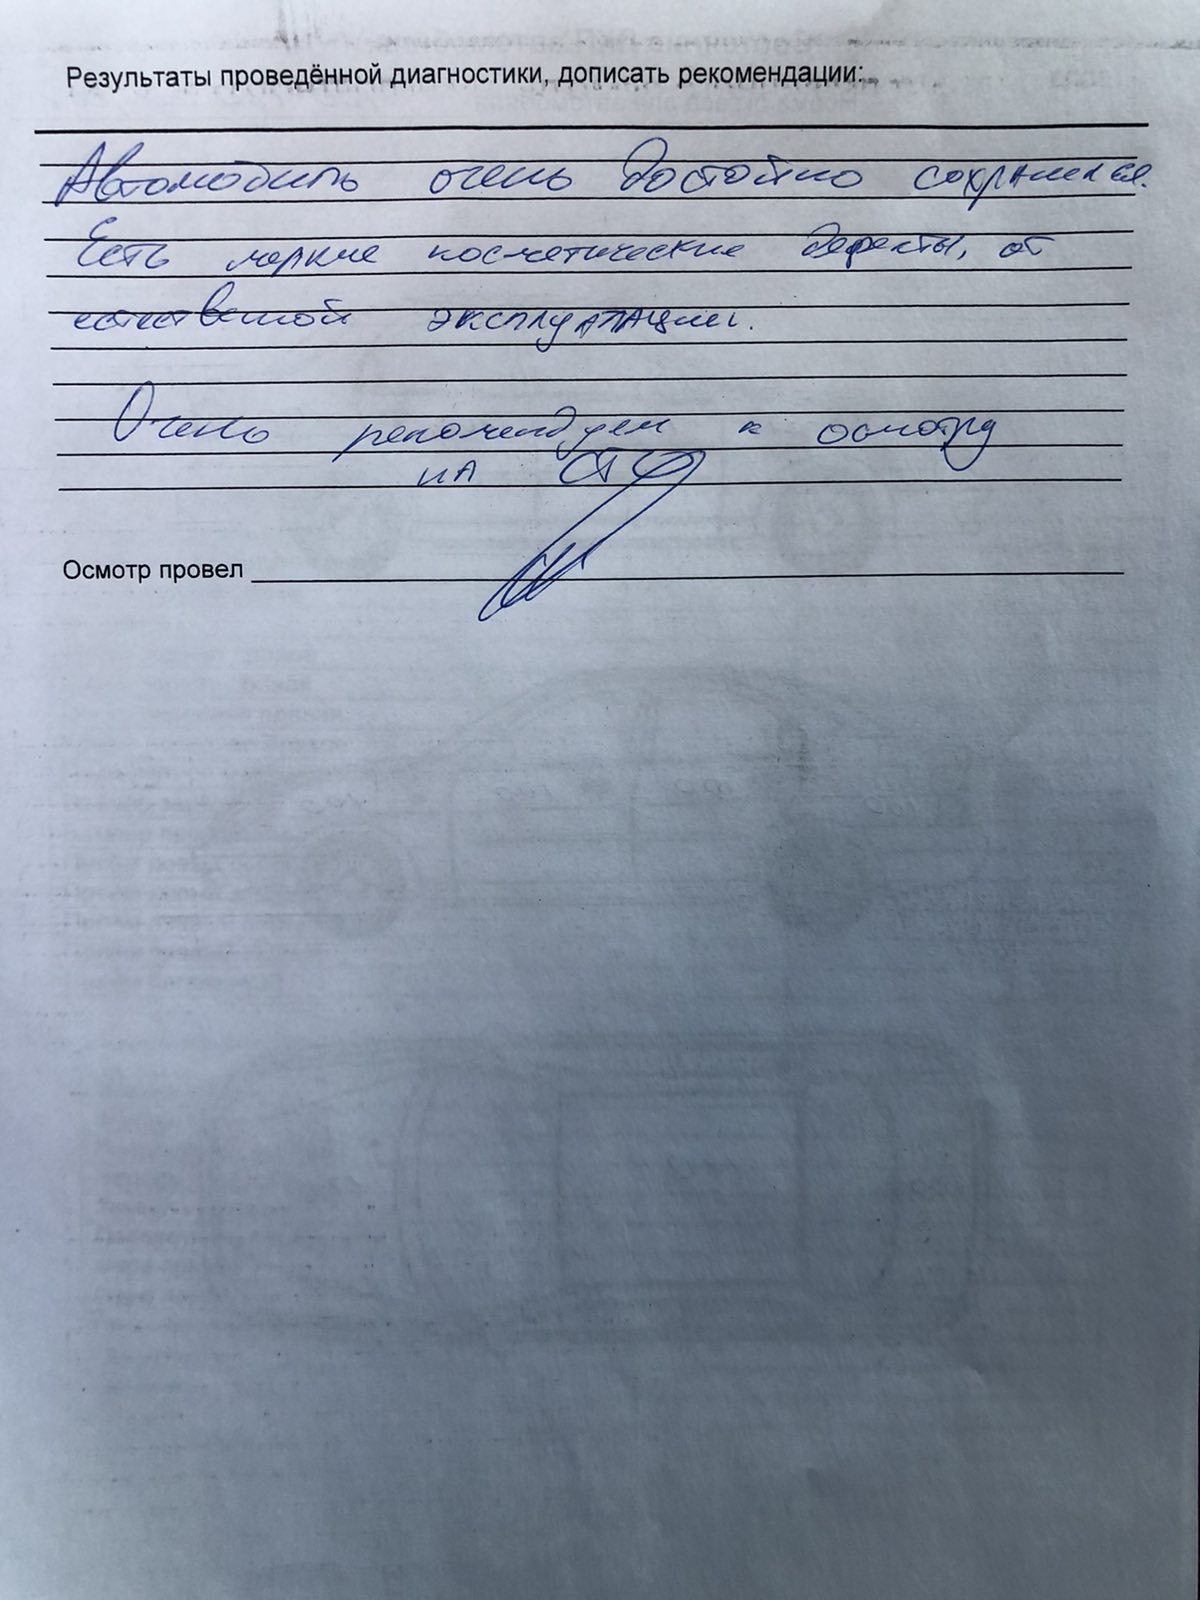 Результаты проведённой диагностики, дописать рекомендации:
Автомобиль очень достойно сохранился.
Есть мелкие косметические дефекты, от
естественной эксплуатации.
Очень рекомендуем к осмотру
на СТО
Осмотр провел